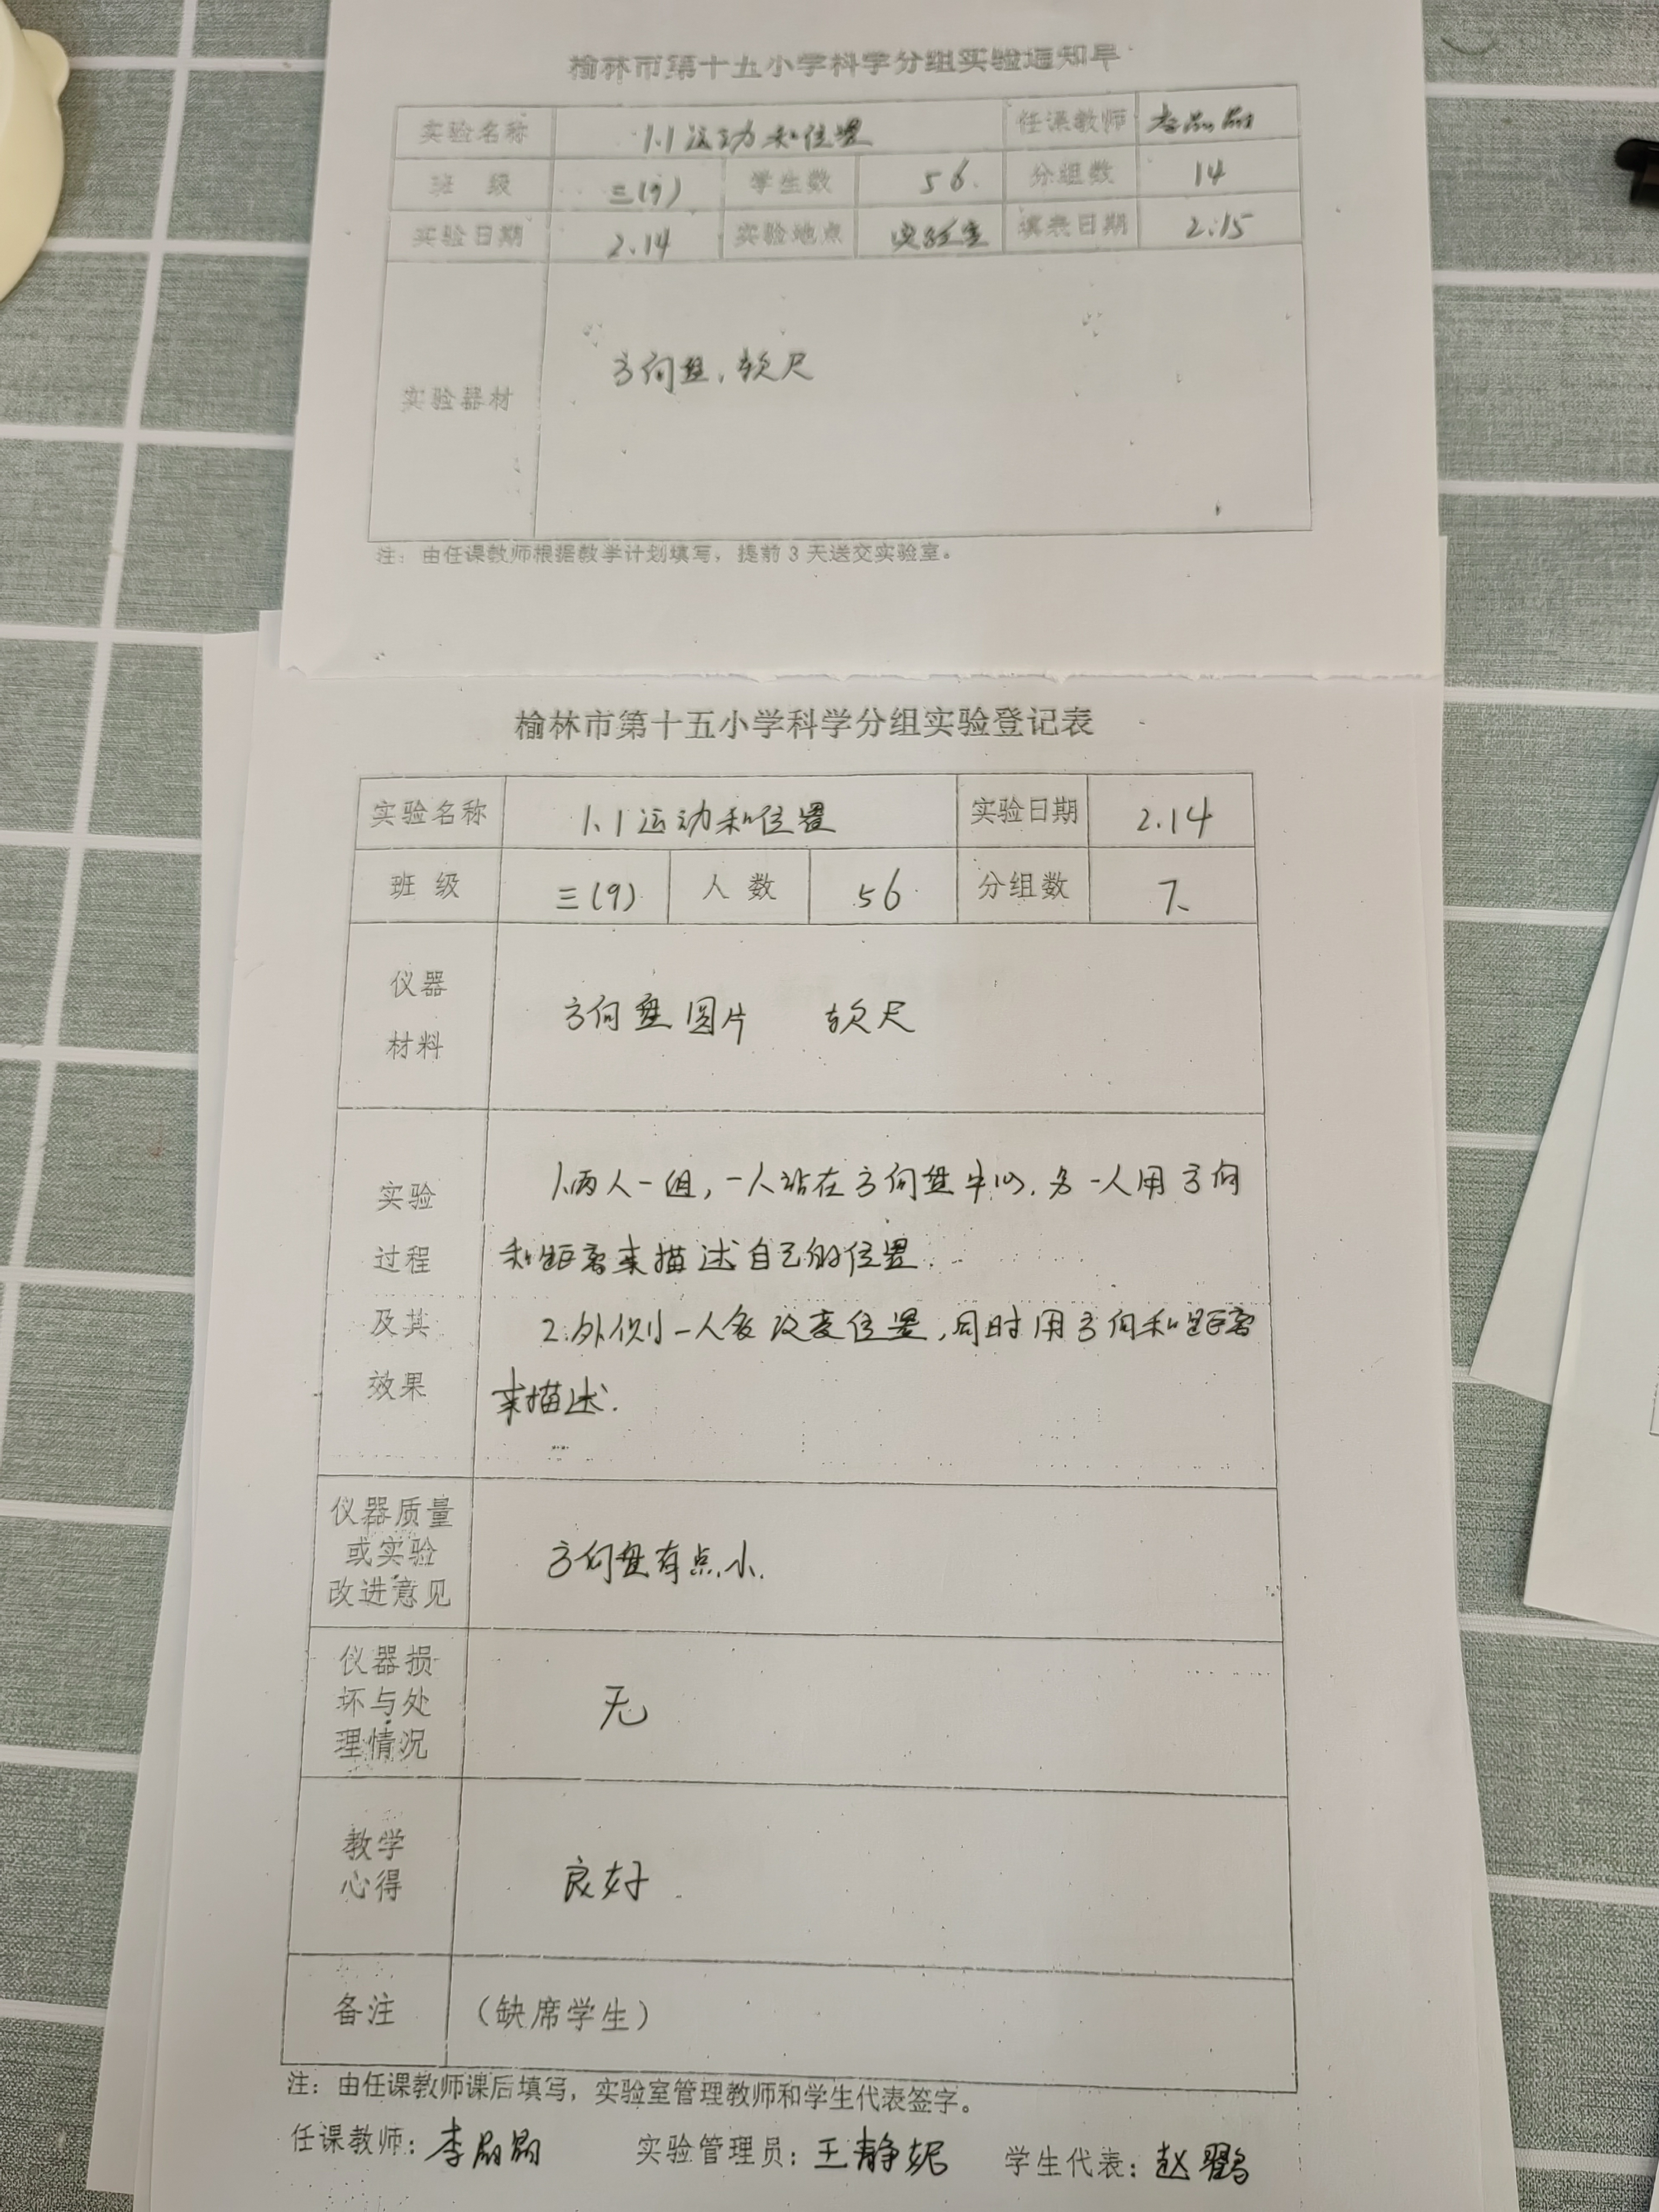 榆林市第十五小学科学分组实验通知单
实验名称 1.1 运动和位置 任课教师
班 级 三(9) 学生数 56 分组数 14
实验日期 2.14 实验地点 实验室 填表日期 2.15
实验器材 方向盘、软尺
注：由任课教师根据教学计划填写，提前 3 天送交实验室。
榆林市第十五小学科学分组实验登记表
实验名称 1.1 运动和位置 实验日期 2.14
班 级 三(9) 人 数 56 分组数 7
仪器
材料
方向盘图片 软尺
实验
过程
及其
效果
1.两人一组，一人站在方向盘中心，另一人用方向
和距离来描述自己的位置.
2.外侧一人多改变位置，同时用方向和距离
来描述.
仪器质量
或实验
改进意见
方向盘有点小.
仪器损
坏与处
理情况
无
教学
心得
良好
备注 （缺席学生）
注：由任课教师课后填写，实验室管理教师和学生代表签字。
任课教师：李 实验管理员：王静妮 学生代表：赵